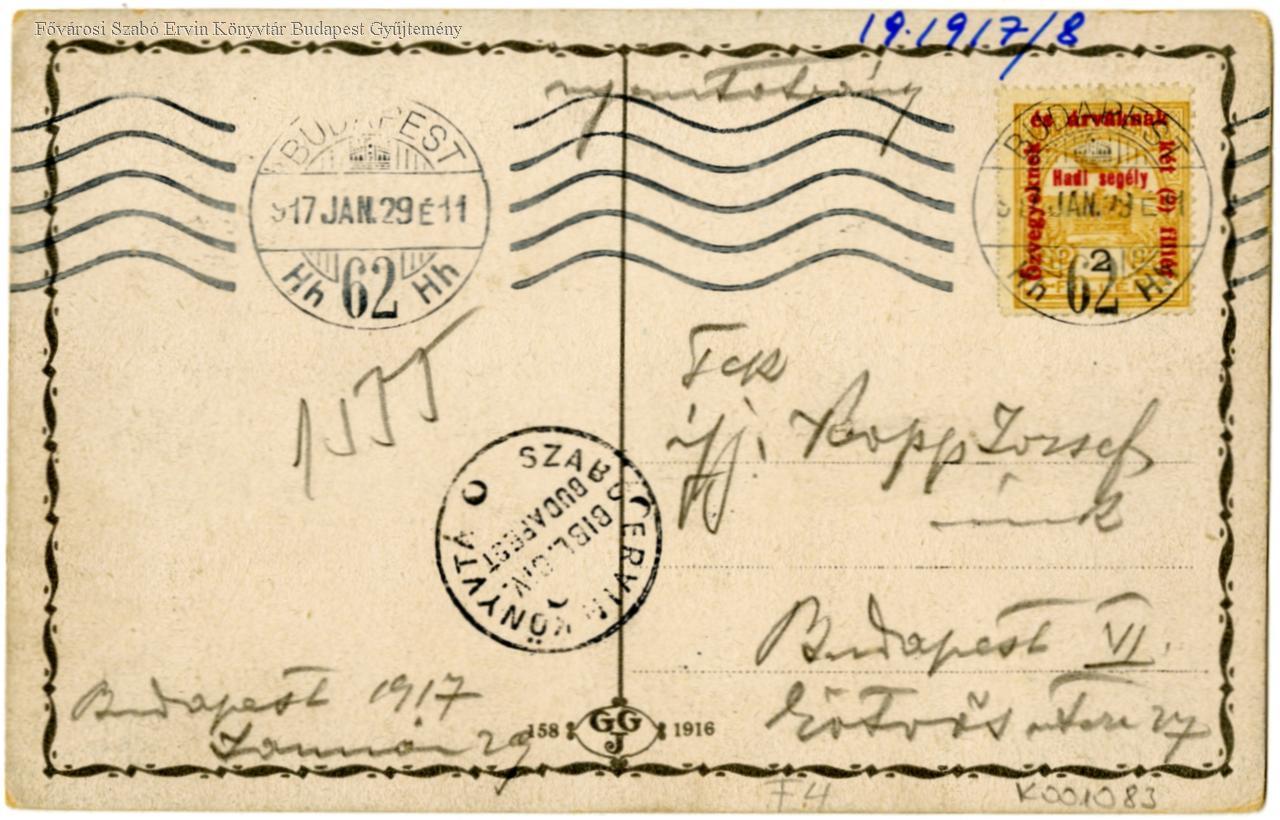 Fővárosi Szabó Ervin Könyvtár Budapest Gyűjtemény
19.1917/8
nyomtatvány
BUDAPEST
917 JAN. 29 É 11
Hh 62 Hh
BUDAPEST
JAN. 29 É 11
62
és árváknak
Özvegyeknek
két (2) fillér
Hadi segély
2
1575
Tek
ifj. Kopp József
úrnak
SZABÓ ERVIN KÖNYVTÁR
BIBL. CIV.
BUDAPEST
Budapest VI.
Eötvös utca 27
Budapest 1917
Január 29
158 GGJ 1916
F4
K001083